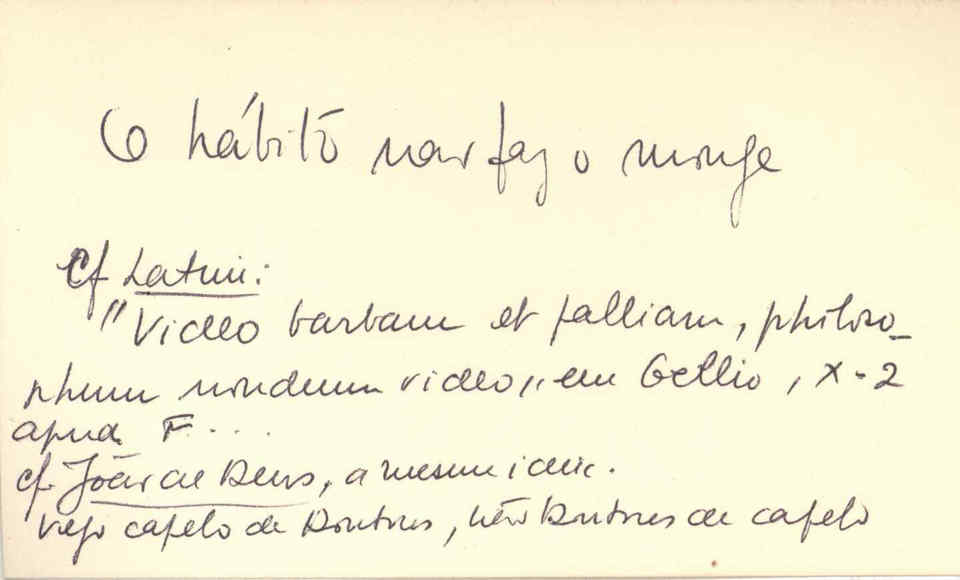 O hábito não faz o monge
Cf Latim:
"Video barbam et palliam, philoso-
phum nondum video", em Gellio, X-2
apud F....
cf. João de Deus, a mesma ideia.
Vejo capelo de Doutores, não Doutores de capelo